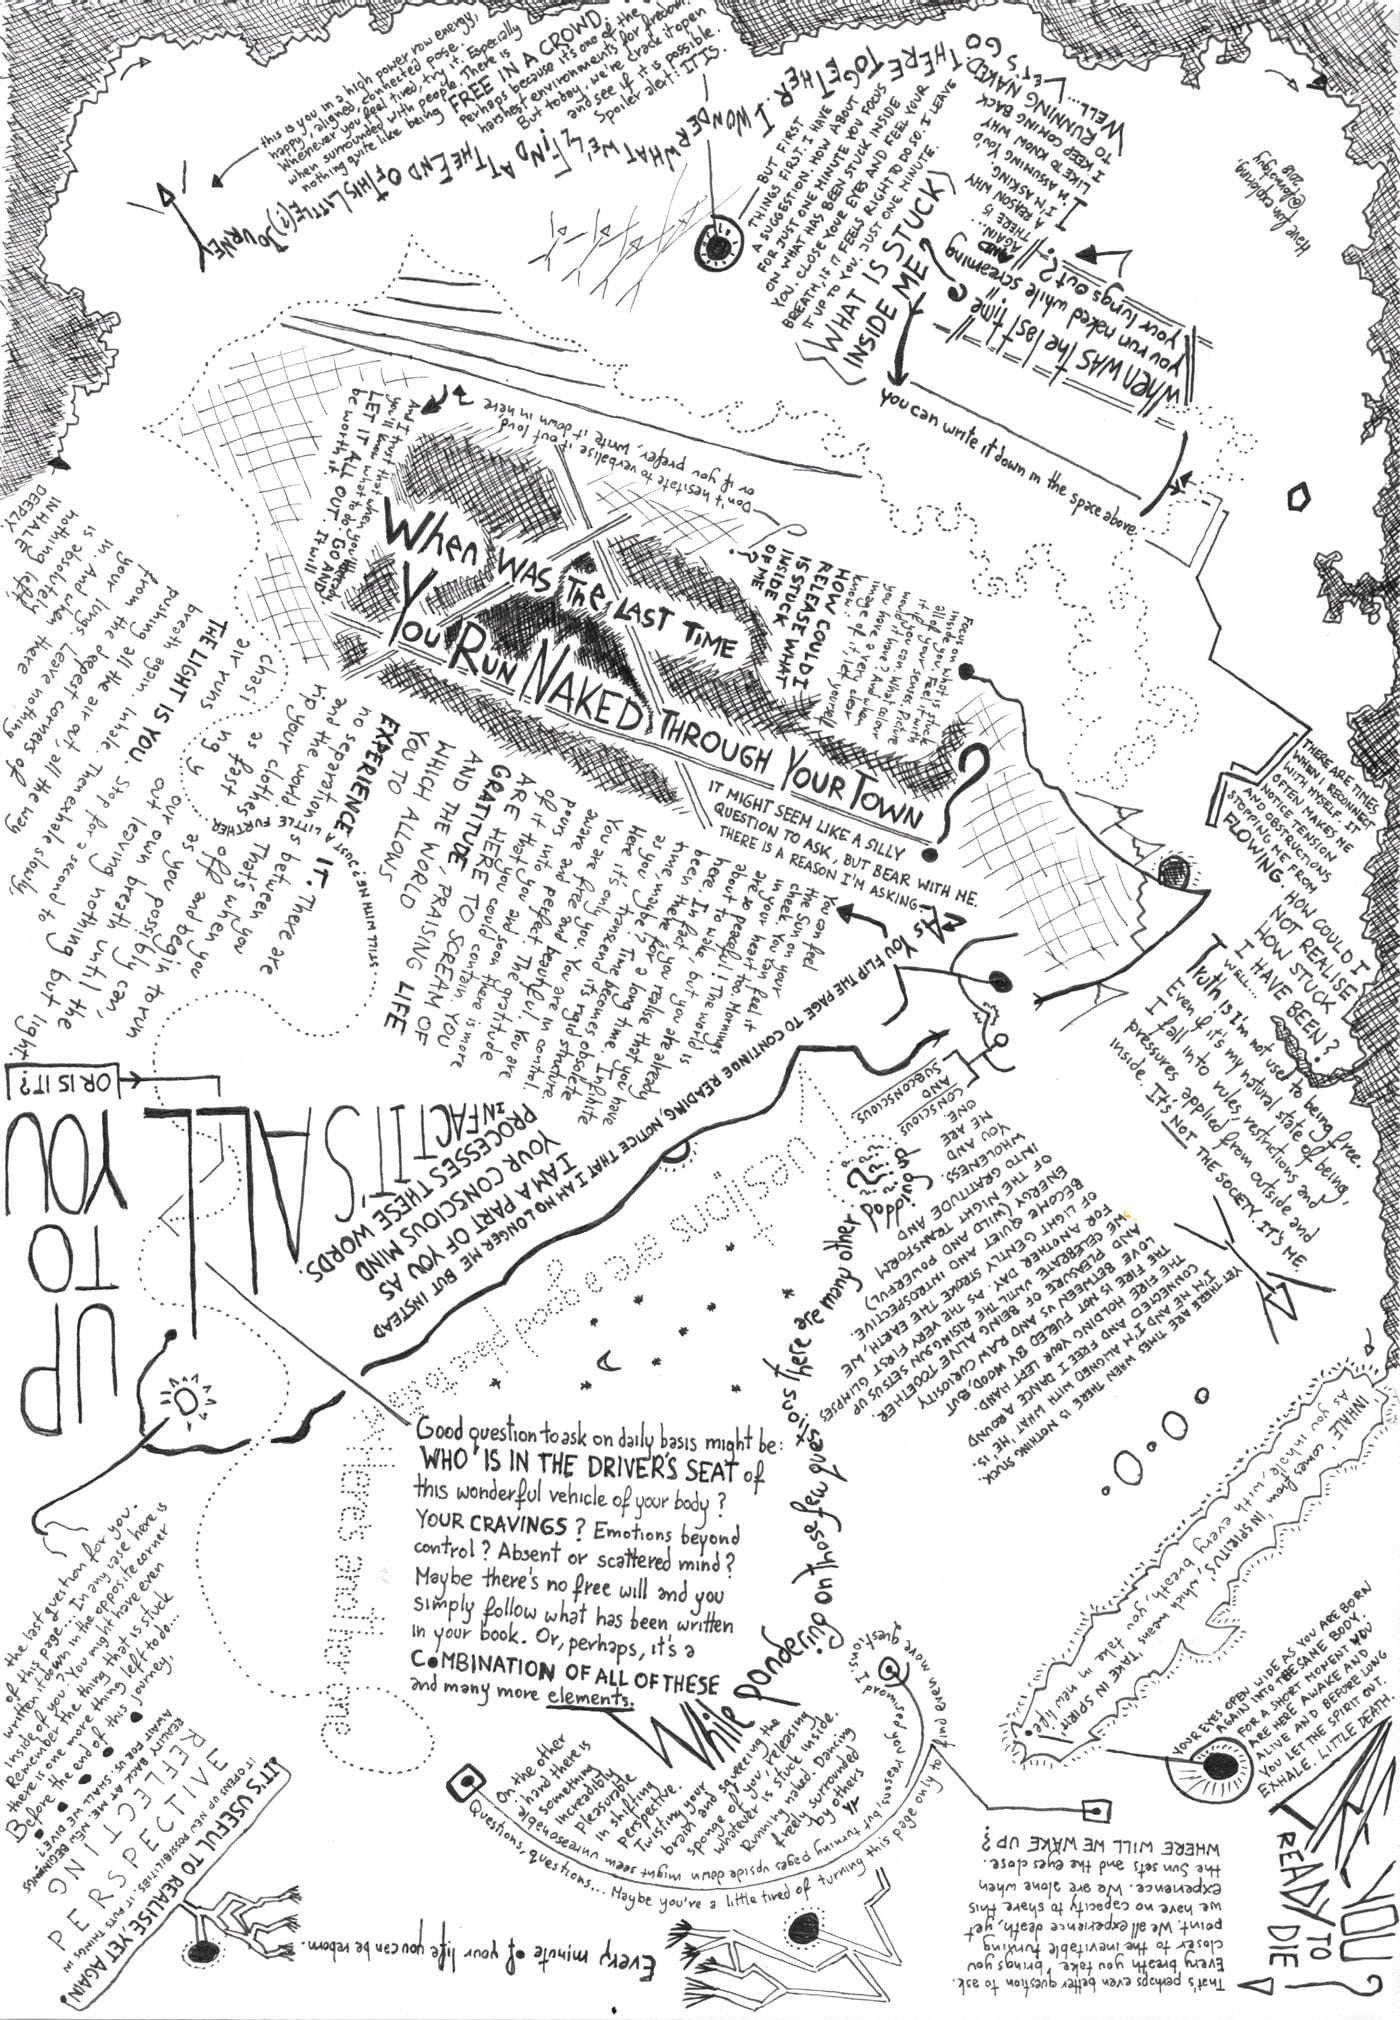 When WAS THE LAST TIME
YOU RUN NAKED THROUGH YOUR TOWN ?
IT MIGHT SEEM LIKE A SILLY
QUESTION TO ASK, BUT BEAR WITH ME.
THERE IS A REASON I'M ASKING.
As YOU FLIP THE PAGE TO CONTINUE READING, NOTICE THAT I AM NO LONGER ME BUT INSTEAD
I AM A PART OF YOU AS
YOUR CONSCIOUS MIND
PROCESSES THESE WORDS.
IN FACT IT IS ALL
UP
TO
YOU
OR IS IT?
Good question to ask on daily basis might be:
WHO IS IN THE DRIVER'S SEAT of
this wonderful vehicle of your body ?
YOUR CRAVINGS ? Emotions beyond
control ? Absent or scattered mind ?
Maybe there's no free will and you
simply follow what has been written
in your book. Or, perhaps, it's a
COMBINATION OF ALL OF THESE
and many more elements.
While pondering on those few questions there are many other
popping up
Questions are a good place to start
Where's another one
On the other
hand there is
something
incredibly
pleasurable
in shifting
perspective.
Twisting your
brain and squeezing the
sponge of you, releasing
whatever is stuck inside.
Running naked. Dancing
freely surrounded
by others
Questions, questions... Maybe you're a little tired of turning this page only to find even more questions.
I promised you reason, but turning pages upside down might seem unreasonable
WHERE WILL WE WAKE UP ?
That's perhaps even better question to ask.
Every breath you take brings you
closer to the inevitable turning
point. We all experience death, yet,
we have no capacity to share this
experience. We are alone when
the Sun sets and the eyes close.
ARE YOU
READY TO
DIE ?
YOUR EYES OPEN WIDE AS YOU ARE BORN
AGAIN INTO THE SAME BODY.
FOR A SHORT MOMENT YOU
ARE HERE AWAKE AND
ALIVE AND BEFORE LONG
YOU LET THE SPIRIT OUT.
EXHALE. LITTLE DEATH.
'INHALE' comes from 'INSPIRITUS', which means 'TAKE IN SPIRIT'
As you inhale, with every breath, you take in new life.
Every minute of your life you can be reborn.
IT'S USEFUL TO REALISE, YET AGAIN!
IT OPENS UP NEW POSSIBILITIES. IT PUTS THINGS IN
PERSPECTIVE
REFLECTING
the last question for you.
of this page... In any case here is
written it down in the opposite corner
inside of you ? You might have even
Remember the thing that is stuck
there is one more thing left to do...
Before the end of this journey.
REALITY BACK AT ME. NEW BEGINNINGS
AWAIT FOR US. SHALL WE DIVE?
THERE ARE TIMES
WHEN I RECONNECT
WITH MYSELF. IT
OFTEN MAKES ME
NOTICE TENSION
AND OBSTRUCTION
STOPPING ME FROM
FLOWING. HOW COULD I
NOT REALISE
HOW STUCK
I HAVE
BEEN?
WELL...
Truth is I'm not used to being free.
Even if it's my natural state of being,
I fall into rules, restrictions and
pressures applied from outside and
inside. It's NOT THE SOCIETY. IT'S ME
YET THERE ARE TIMES WHEN THERE IS NOTHING STUCK.
I'M ME AND I'M ALIGNED WITH WHAT 'ME' IS.
CONNECTED AND FREE I DANCE AROUND
THE FIRE HOLDING YOUR LEFT HAND.
LOVE IS BETWEEN US AND RAW CURIOSITY
THE FIRE IS NOT FUELED BY WOOD, BUT
PLEASURE OF BEING ALIVE TOGETHER.
WE CELEBRATE UNTIL THE RISING SUN SETS US UP
FOR ANOTHER DAY. AS THE VERY FIRST GLIMPSES
OF LIGHT GENTLY STROKE THE EARTH, WE
BECOME QUIET AND INTROSPECTIVE.
ENERGY (WILD AND POWERFUL)
OF THE NIGHT TRANSFORM
INTO GRATITUDE AND
WHOLENESS.
YOU AND
ME ARE
ONE
CONSCIOUS
AND
SUBCONSCIOUS
You can feel
the Sun on your
cheek. You can feel it
in your heart too. Mornings
are so peaceful! The world is
about to wake, but you are already
here. In fact, you realise that you have
been there for a long time. Infinite
time, maybe ? Time becomes obsolete
as you transcend its rigid structure.
Here it's only you. You are in control.
You are free and beautiful. You are
aware and perfect. The gratitude
pours into you and soon there is more
of it that you could contain. YOU
ARE HERE TO SCREAM OF
GRATITUDE, PRAISING LIFE
AND THE WORLD
WHICH ALLOWS
YOU TO
EXPERIENCE IT. There are
no separations between you
and the world. That's when you
rip your clothes off and begin to run
as fast as you possibly can,
chasing
our own breath until the
air runs
out leaving nothing but light.
STILL WITH ME? JUST A LITTLE FURTHER
THE LIGHT IS YOU. Stop for a second to
breath again. Inhale. Then exhale slowly,
pushing all the air out, all the way
from the deepest corners of
your lungs. Leave nothing
in. And when there
is absolutely
nothing left,
INHALE
DEEPLY
HOW COULD I
RELEASE WHAT
IS STUCK
INSIDE
OF ME
?
Focus on what is stuck
inside you. Feel it with
all of your senses. Picture
it if you can. What colour
would it have ? And when
you have a very clear
image of it let yourself
know.
Don't hesitate to verbalise it out loud
or if you prefer, write it down in here
And I trust that when you're ready
you'll know what to do. GO AND
LET IT ALL OUT. It will
be worth it.
this is you in a high power raw energy,
happy, aligned, connected pose.
Whenever you feel tired, try it. Especially
when surrounded with people. There is
nothing quite like being FREE IN A CROWD.
Perhaps because it's one of the
harshest environments for freedom.
But today, we're crack it open
and see if it is possible.
Spoiler alert: IT IS.
WELL...
LET'S GO THERE TOGETHER. I WONDER WHAT WE'LL FIND AT THE END OF THIS LITTLE(?) JOURNEY
BUT FIRST
THINGS FIRST. I HAVE
A SUGGESTION. HOW ABOUT
FOR JUST ONE MINUTE YOU FOCUS
ON WHAT HAS BEEN STUCK INSIDE
YOU. CLOSE YOUR EYES AND FEEL YOUR
BREATH, IF IT FEELS RIGHT TO DO SO. I LEAVE
IT UP TO YOU. JUST ONE MINUTE.
WHAT IS STUCK
INSIDE ME ?
you can write it down in the space above
when was the last time
you run naked while screaming
your lungs out ?
AND
AGAIN...
THERE IS
A REASON WHY
I'M ASKING.
I'M ASSUMING YOU'D
LIKE TO KNOW WHY
I KEEP COMING BACK
TO RUNNING NAKED
Have fun exploring,
2018